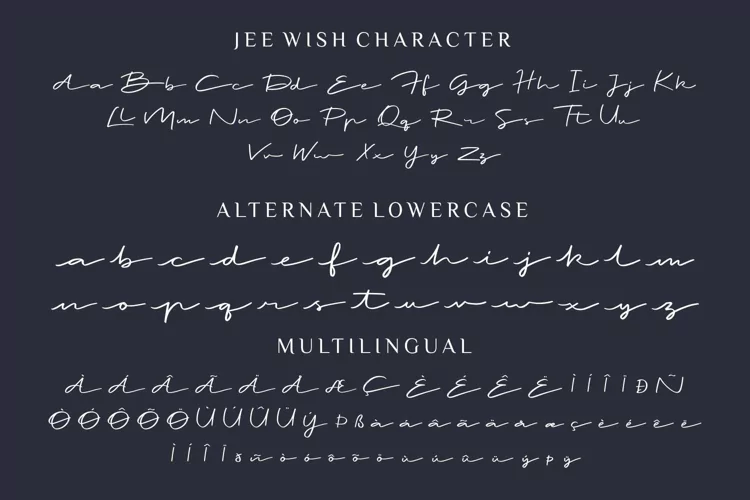 JEE WISH CHARACTER
Aa Bb Cc Dd Ee Ff Gg Hh Ii Jj Kk
Ll Mm Nn Oo Pp Qq Rr Ss Tt Uu
Vv Ww Xx Yy Zz
ALTERNATE LOWERCASE
a b c d e f g h i j k l m
n o p q r s t u v w x y z
MULTILINGUAL
À Á Â Ã Ä Å Æ Ç È É Ê Ë Ì Í Î Ï Ð Ñ
Ò Ó Ô Õ Ö Ù Ú Û Ü Ý Þ ß à á â ã ä å æ ç è é ê ë
Ì Í Î Ï ð ñ ò ó ô õ ö ù ú û ü ý þ ÿ